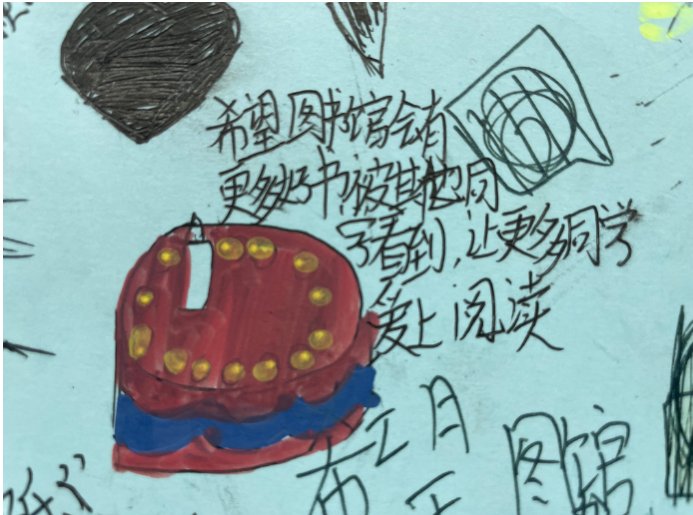 希望图书馆会有
更多好书被其他同
学看到,让更多同学
爱上阅读
图馆